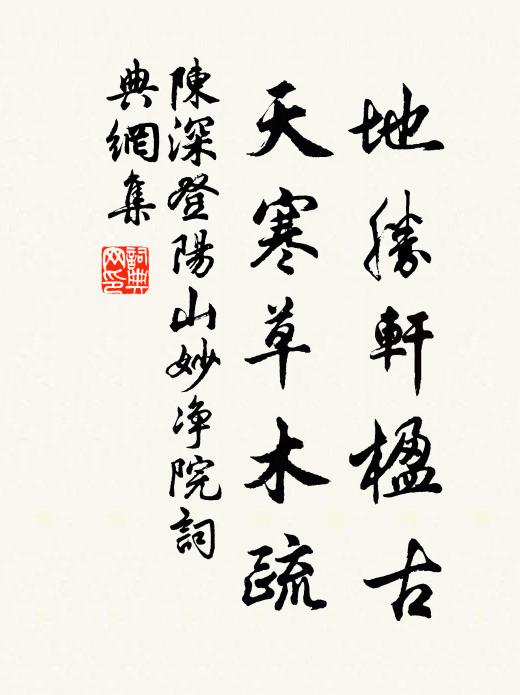 地勝軒楹古
天寒草木疏
陳深登陽山妙净院詞
典網集
詞典
网印